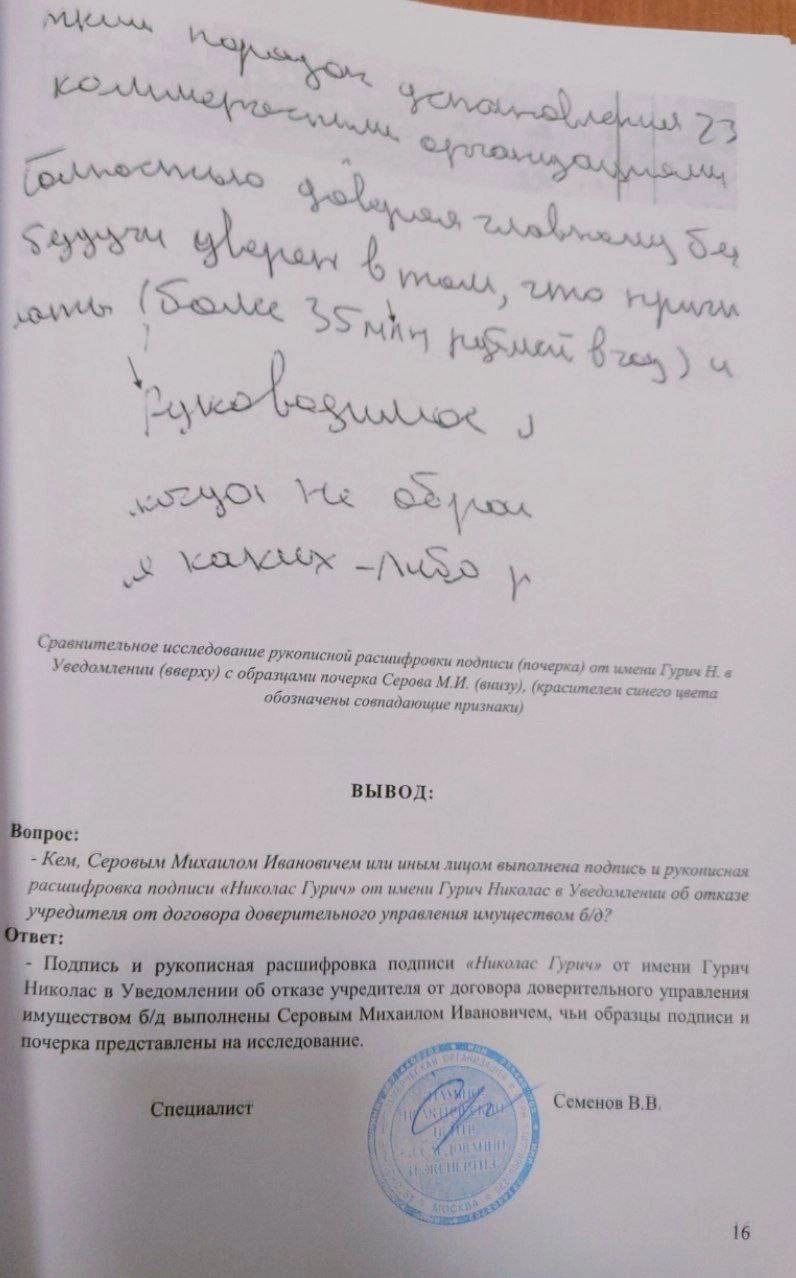 порядок установления 23
коммерческими организациями
Полностью доверяя главному бу
будучи уверен в том, что причи
латы (более 35 млн рублей в год) и
Руководимое
когда не обра
я каких-либо р
Сравнительное исследование рукописной расшифровки подписи (почерка) от имени Гурич Н. в
Уведомлении (вверху) с образцами почерка Серова М.И. (внизу), (красителем синего цвета
обозначены совпадающие признаки)
ВЫВОД:
Вопрос:
- Кем, Серовым Михаилом Ивановичем или иным лицом выполнена подпись и рукописная
расшифровка подписи «Николас Гурич» от имени Гурич Николас в Уведомлении об отказе
учредителя от договора доверительного управления имуществом б/д?
Ответ:
- Подпись и рукописная расшифровка подписи «Николас Гурич» от имени Гурич
Николас в Уведомлении об отказе учредителя от договора доверительного управления
имуществом б/д выполнены Серовым Михаилом Ивановичем, чьи образцы подписи и
почерка представлены на исследование.
Специалист
Семенов В.В.
ИССЛЕДОВАНИЙ
И ЭКСПЕРТИЗ
МОСКВА
16